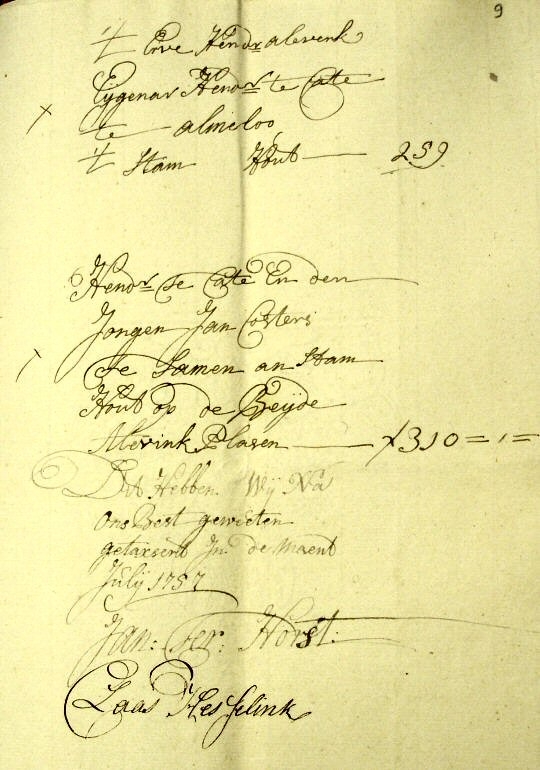 9
't Erve Hendr alevenk
Eijgenar Hendr te Cate
te almeloo
't Stam Hout 259
Hendr te Cate En den
Jongen Jan Costers
te Samen an Stam
Hout op de Beijde
Alevink Plasen 310=1=
Dit Hebben Wij Na
Ons Best gewieten
getaxsert In de Maent
Julij 1757
Jan: ter: Horst:
Claas Hesselink